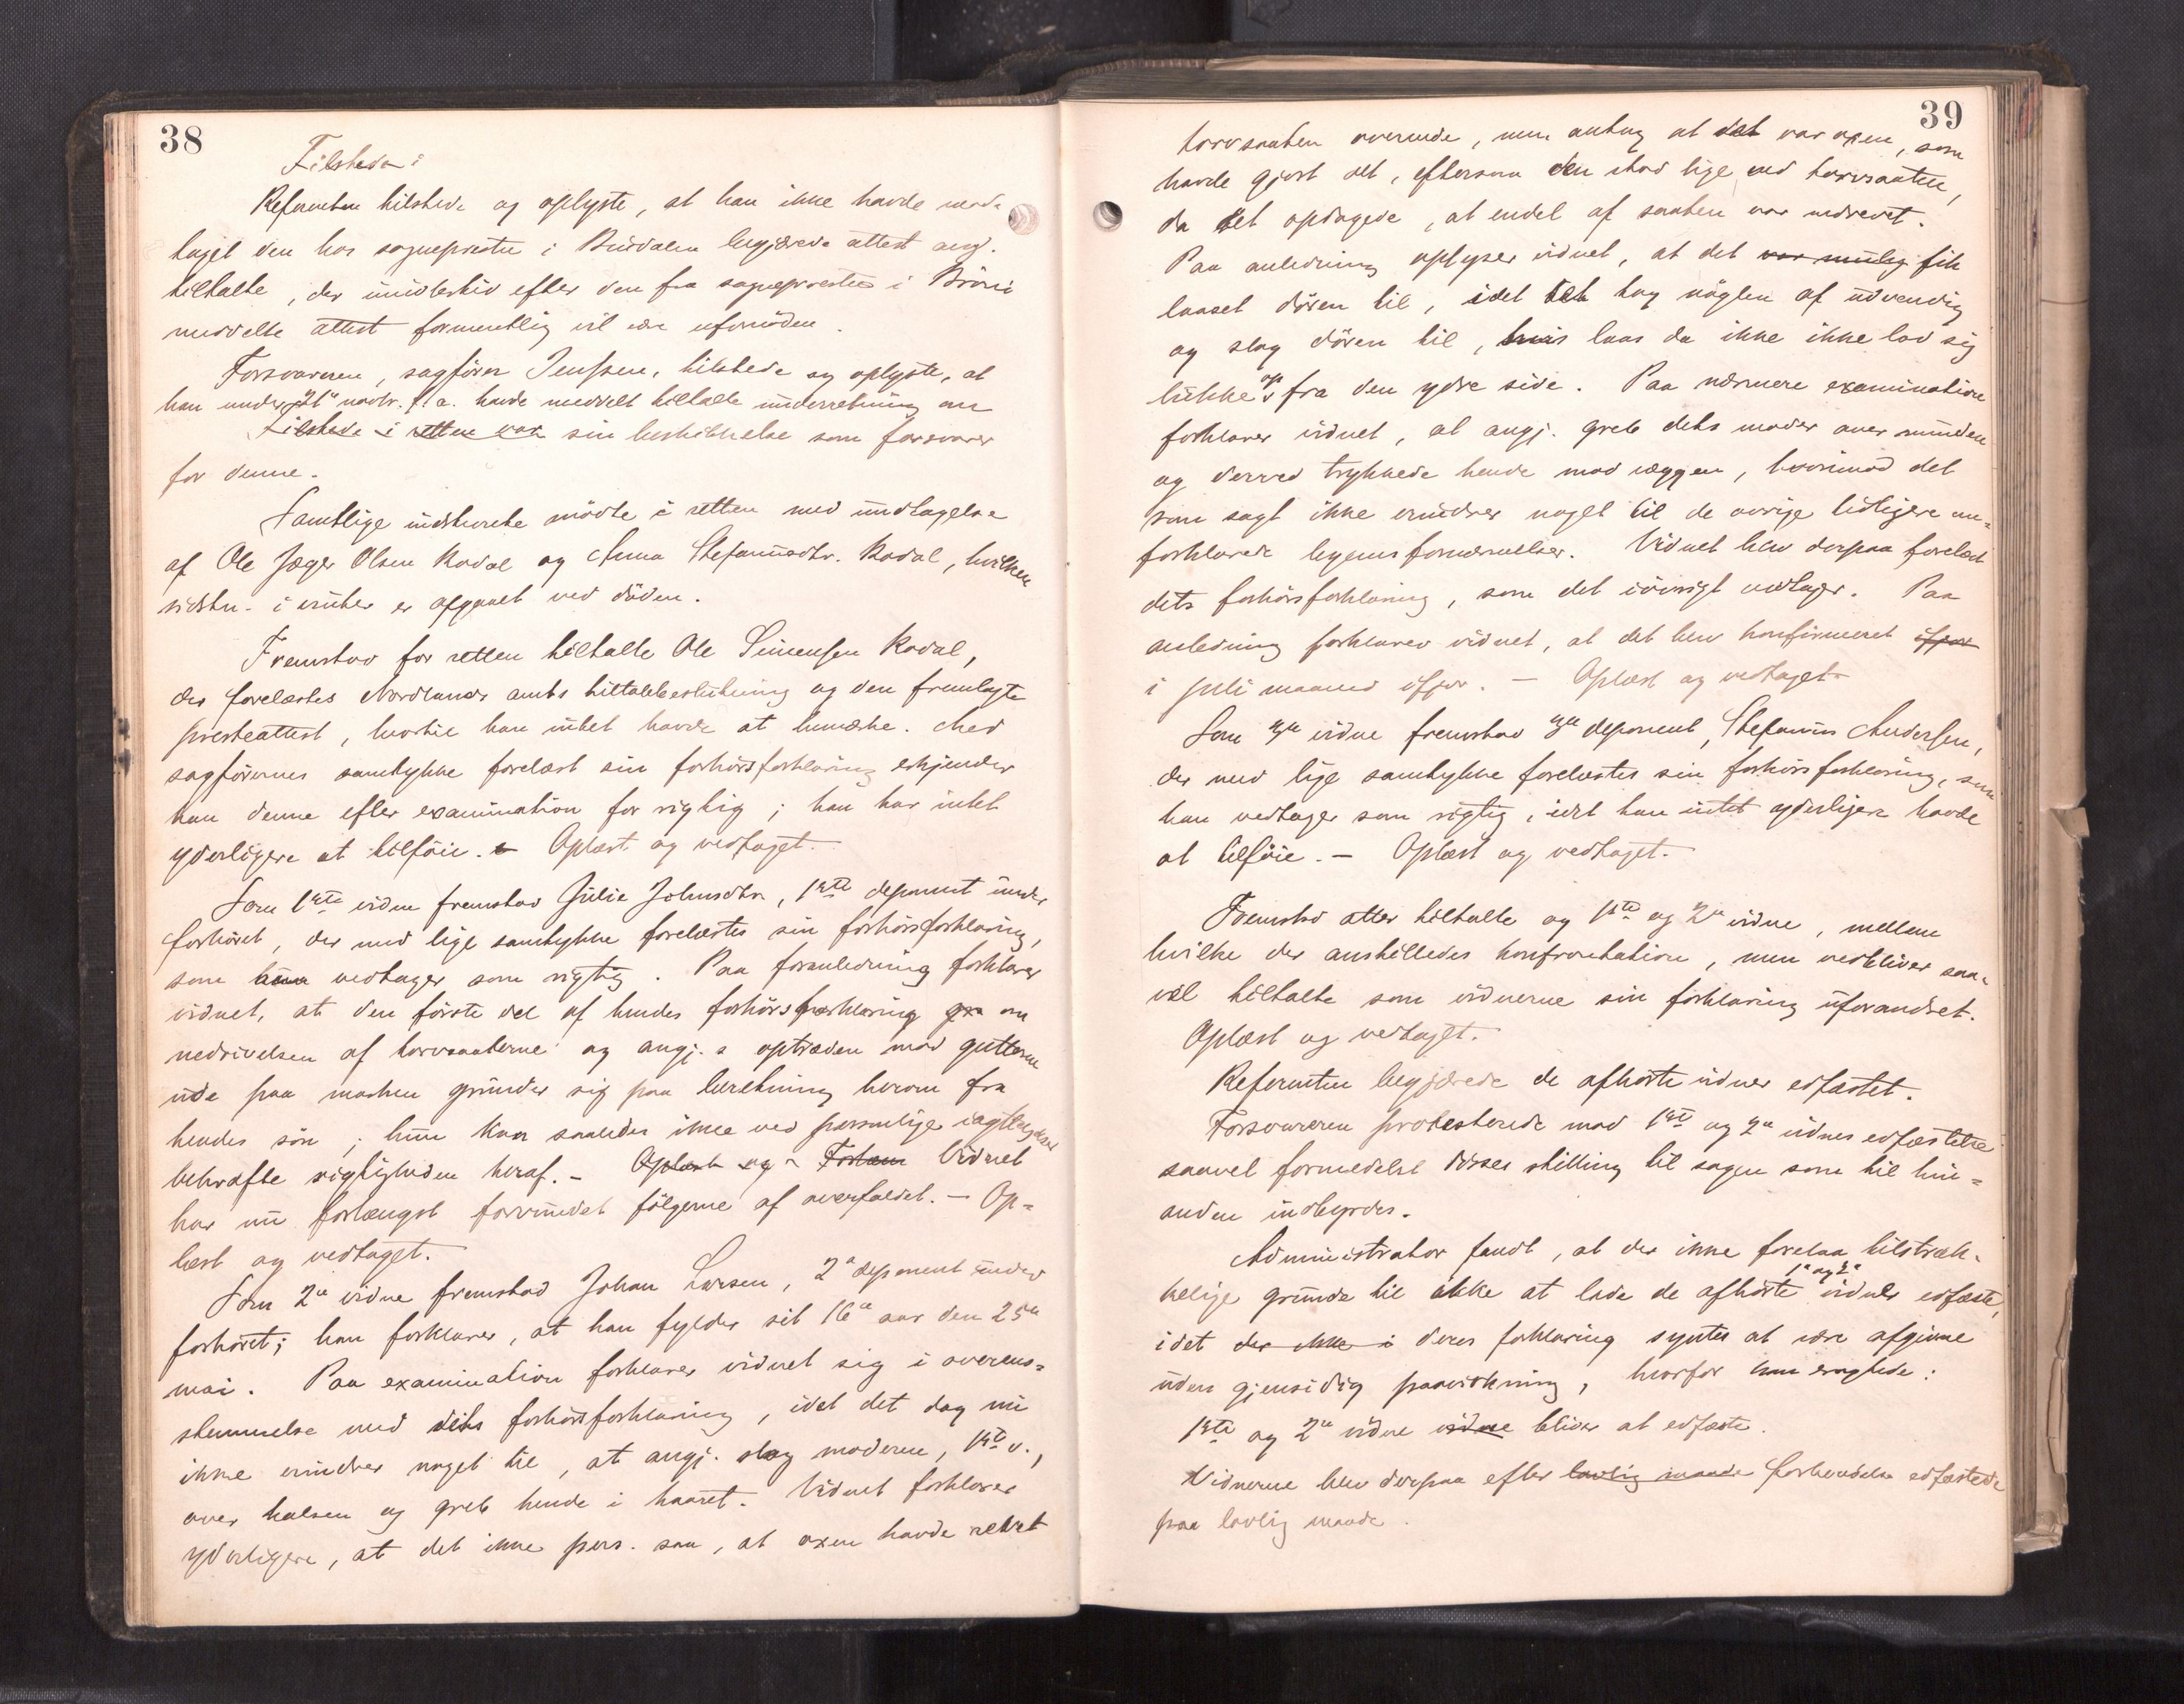 38
Tilstede:
Referenten tilstede og oplyste, at han ikke havde mod-
taget den hos sognepresten i Bindalen begjærede attest ang.
tiltalte, der imidlertid efter den fra sognepresten i Brönö
meddelte attest formentlig vil være ufornöden.
Forsvareren, sagförer Jenssen, tilstede og oplyste, at
han under 21de novbr. f. a. havde meddelt tiltalte underretning om
Tilstede i retten var sin beskikkelse som forsvarer
for denne.
Samtlige indstevnte mödte i retten med undtagelse
af Ole Jæger Olsen Kodal og Anna Stefanusdtr. Kodal, hvilken
sidstn. i vinter er afgaaet ved döden.
Fremstod for retten tiltalte Ole Simensen Kodal,
der forelæstes Nordlands amts tiltalebeslutning og den fremlagte
presteattest, hvortil han intet havde at bemærke. Med
sagförernes samtykke forelæst sin forhörsforklaring erkjender
han denne efter examination for rigtig; han har intet
yderligere at tilföie. - Oplæst og vedtaget.
Som 1ste vidne fremstod Julie Johnsdtr, 1ste deponent under
forhöret, der med lige samtykke forelæstes sin forhörsforklaring,
som hun vedtager som rigtig. Paa foranledning forklarer
vidnet, at den förste del af hendes forhörsforklaring om
nedrivelsen af torvsaaterne og angj.s optræden mod gutterne
ude paa marken grunder sig paa beretning herom fra
hendes sön; hun kan saaledes ikke ved personlige iagttagelser
bekræfte rigtigheden heraf. - Oplæst og - Vidnet
har nu forlængst forvundet fölgerne af overfaldet. - Op-
læst og vedtaget.
Som 2det vidne fremstod Johan Larsen, 2det deponent under
forhöret; han forklarer, at han fylder sit 16de aar den 25de
mai. Paa examination forklarer vidnet sig i overens-
stemmelse med dets forhörsforklaring, idet det dog nu
ikke erindrer noget til, at angj. slog moderen, 1ste v.,
over halsen og greb hende i haaret. Vidnet forklarer
yderligere, at det ikke pers. saa, at oxen havde veltet
39
torvsaaten overende, men antog at det var oxen, som
havde gjort det, eftersom den stod lige ved torvsaaten,
da det opdagede, at endel af saaten var nedrevet.
Paa anledning oplyser vidnet, at det var mulig fik
laaset dören til, idet det tog nöglen af udvendig
og slog dören til, hvis laas da ikke ikke lod sig
lukke op fra den ydre side. Paa nærmere examination
forklarer vidnet, at angj. greb dets moder over munden
og derved trykkede hende mod væggen, hvorimod det
som sagt ikke erindrer noget til de övrige tidligere om-
forklarede legemsfornærmelser. Vidnet blev derpaa forelæst
dets forhörsforklaring, som det iövrigt vedtager. Paa
anledning forklarer vidnet, at det blev konfirmeret ifjor
i juli maaned ifjor. - Oplæst og vedtaget
Som 3die vidne fremstod 3die deponent, Stefanus Andersen,
der med lige samtykke forelæstes sin forhörsforklaring, som
han vedtager som rigtig, idet han intet yderligere havde
at tilföie. - Oplæst og vedtaget.
Fremstod atter tiltalte og 1ste og 2det vidne, mellem
hvilke der anstilledes konfrontation, men vedbliver saa-
vel tiltalte som vidnerne sin forklaring uforandret.
Oplæst og vedtaget.
Referenten begjærede de afhörte vidner edfæstet.
Forsvareren protesterede mod 1ste og 2det vidnes edfæstelse
saavel formedelst disses stilling til sagen som til hin-
anden indbyrdes.
Administrator fandt, at der ikke forelaa tilstræk-
kelige grunde til ikke at lade de afhörte 1ste og 2det vidner edfæste,
idet der ikke i deres forklaring syntes at være afgivne
uden gjensidig paavirkning, hvorfor han eragtede:
1ste og 2det vidne vidne bliver at edfæste.
Vidnerne blev derpaa efter lovlig maade forhendelse edfæstede
paa lovlig maade.